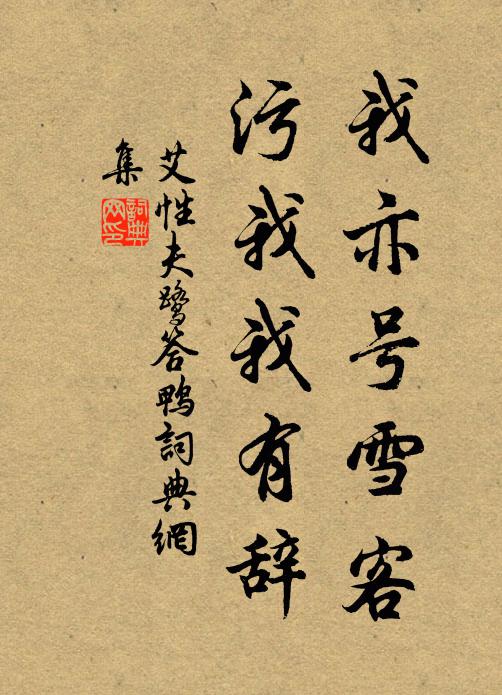 我亦号雪客
污我我有辞
艾性夫鹭答鸭詞典網
集
詞典网印